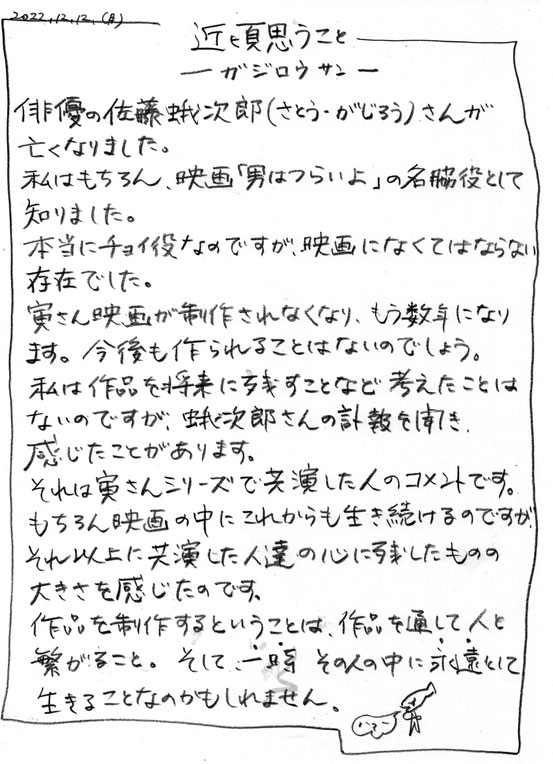 2022.12.12.(月)
近頃思うこと
ーガジロウサンー
俳優の佐藤蛾次郎(さとう・がじろう)さんが
亡くなりました。
私はもちろん、映画「男はつらいよ」の名脇役として
知りました。
本当にチョイ役なのですが、映画になくてはならない
存在でした。
寅さん映画が制作されなくなり、もう数年になり
ます。今後も作られることはないのでしょう。
私は作品を将来に残すことなど考えたことは
ないのですが、蛾次郎さんの訃報を聞き、
感じたことがあります。
それは寅さんシリーズで共演した人のコメントです。
もちろん映画の中にこれからも生き続けるのですが、
それ以上に共演した人達の心に残したものの
大きさを感じたのです。
作品を制作するということは、作品を通して人と
繋がること。そして、一時その人の中に永遠として
生きることなのかもしれません。